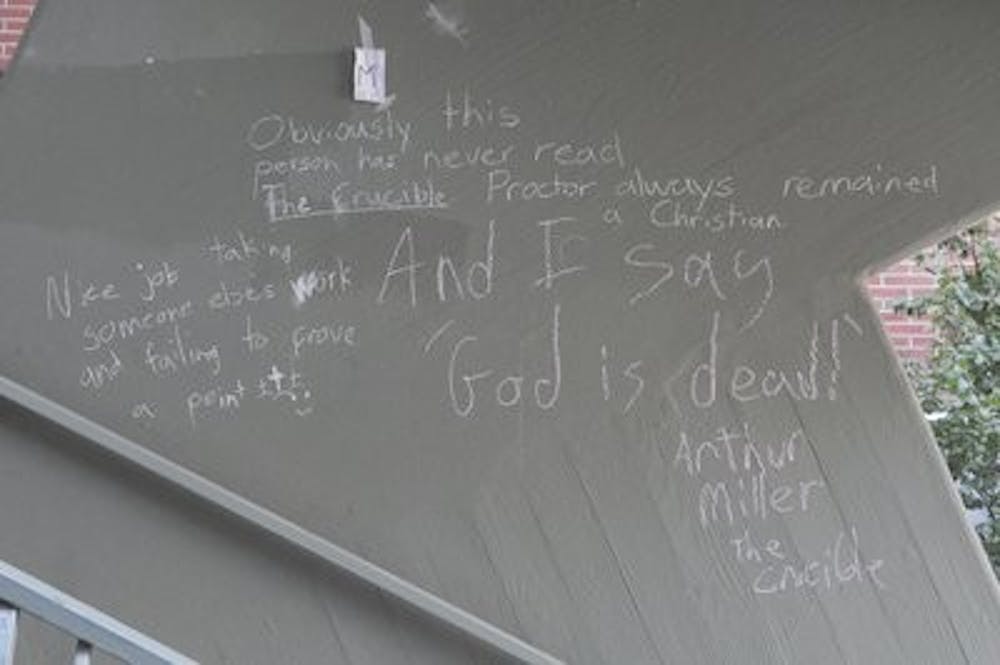 M
Obviously this
person has never read
The Crucible Proctor always remained
a Christian
And I say
"God is dead!"
Arthur
Miller
The
Crucible
Nice job taking
someone elses work
and failing to prove
a point